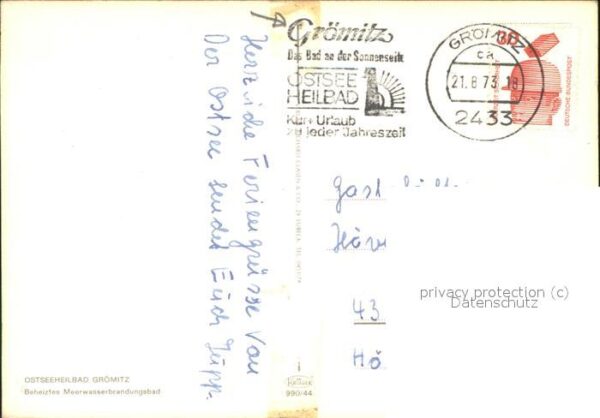 Grömitz
Das Bad an der Sonnenseite
OSTSEE
HEILBAD
Kur + Urlaub
zu jeder Jahreszeit
GRÖMITZ
21.8.73.18
2433
DEUTSCHE BUNDESPOST
Herzliche Feriengrüsse von
Der Ostsee sendet Euch Jupp.
Gast
43
Hö
privacy protection (c)
Datenschutz
OSTSEEHEILBAD GRÖMITZ
Beheiztes Meerwasserbrandungsbad
990/44